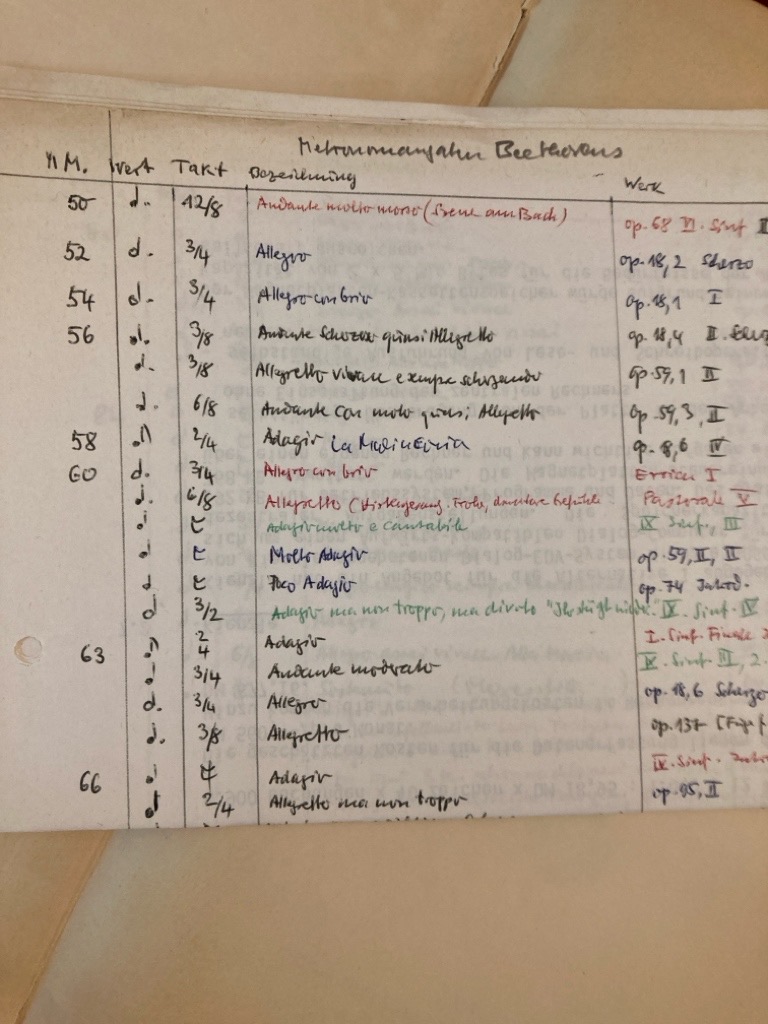 Metronomangaben Beethovens
M.M. Wert Takt Bezeichnung Werk
50 12/8 Andante molto mosso (Szene am Bach) op. 68 VI. Sinf II
52 3/4 Allegro op. 18,2 Scherzo
54 3/4 Allegro con brio op. 18,1 I
56 3/8 Andante Scherzoso quasi Allegretto op. 18,4 II.
3/8 Allegretto vivace e sempre scherzando op. 59,1 II
6/8 Andante con moto quasi Allegretto op. 59,3, II
58 2/4 Adagio La Malinconia op. 18,6 IV
60 3/4 Allegro con brio Eroica I
6/8 Allegretto (Hirtengesang. Frohe, dankbare Gefühle Pastorale V
Adagio molto e cantabile IX Sinf., III
Molto Adagio op. 59, II, II
Poco Adagio op. 74
3/2 Adagio ma non troppo, ma divoto IX. Sinf. IV
63 2/4 Adagio I. Sinf. Finale
3/4 Andante moderato IX. Sinf. III, 2.
3/4 Allegro op. 18,6 Scherzo
3/8 Allegretto op. 137
66 Adagio IV. Sinf.
2/4 Allegretto ma non troppo op. 95, II